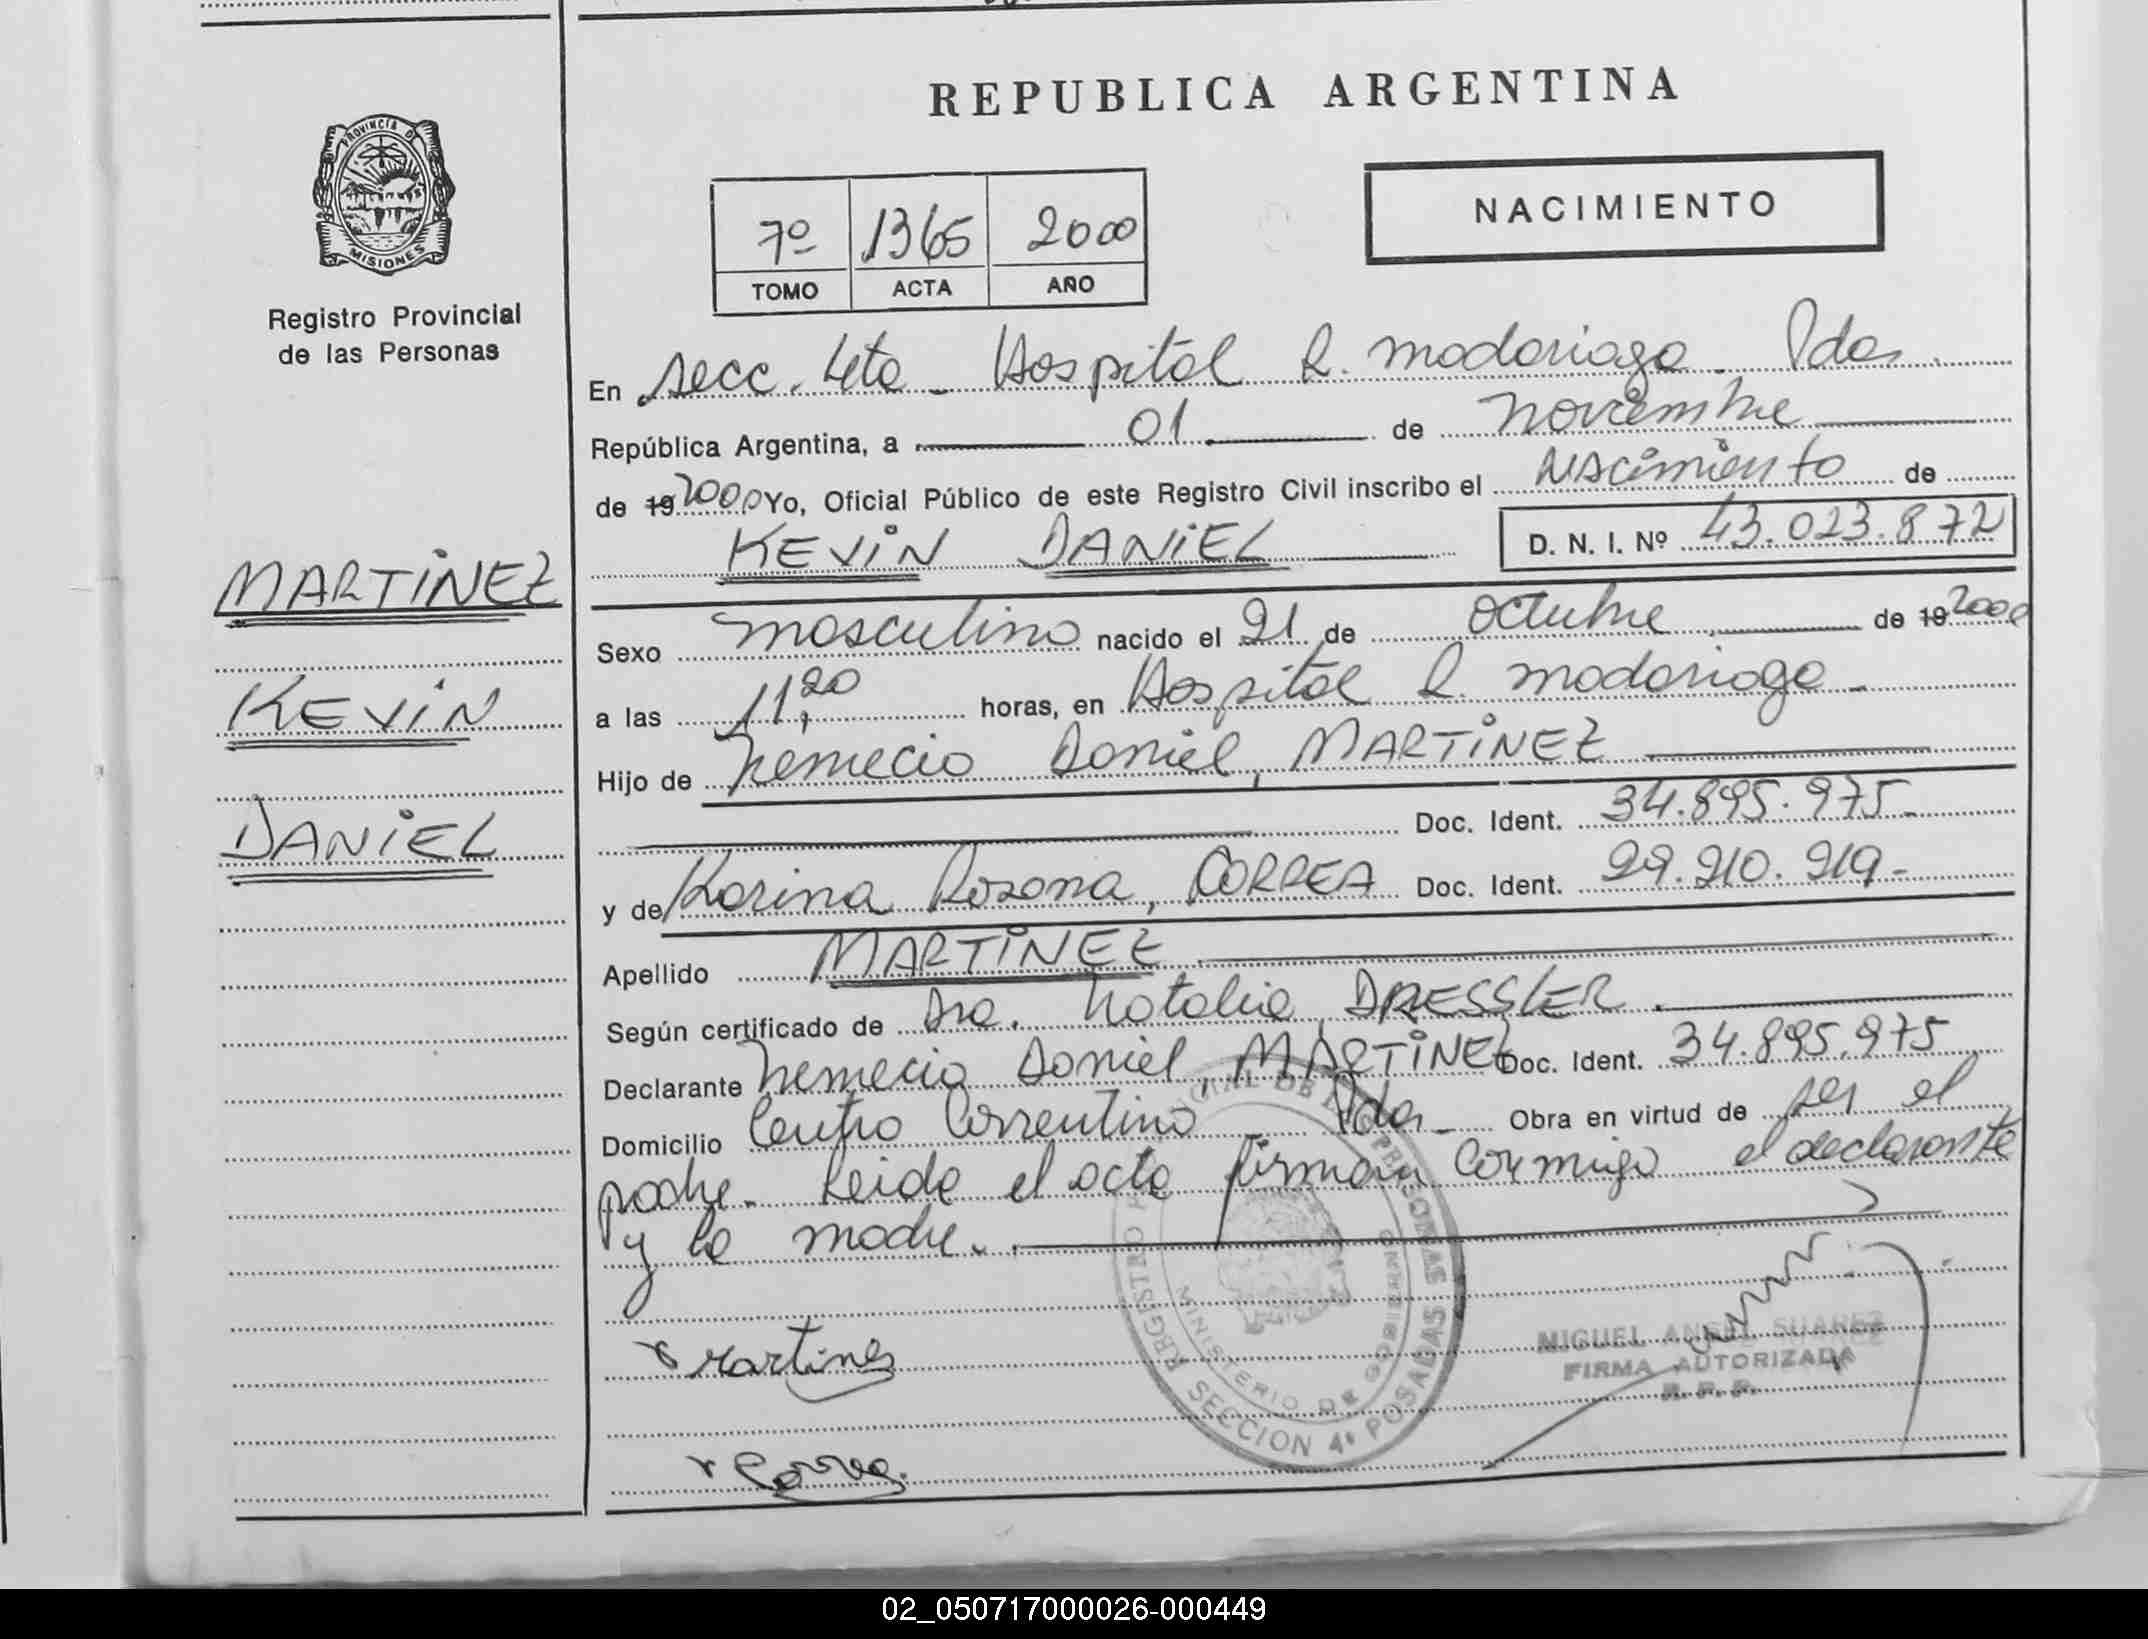 REPUBLICA ARGENTINA
PROVINCIA DE
MISIONES
Registro Provincial
de las Personas
NACIMIENTO
7º 1365 2000
TOMO ACTA AÑO
En secc. 4ta - Hospital R. Madariaga. Pdas.
República Argentina, a 01 de Noviembre
de 19 2000 Yo, Oficial Público de este Registro Civil inscribo el Nacimiento de
KEVIN DANIEL D. N. I. Nº 43.023.872
MARTINEZ
KEVIN
DANIEL
Sexo masculino nacido el 21 de octubre de 19 2000
a las 11,20 horas, en Hospital R. Madariaga -
Hijo de Nemecio Daniel, MARTINEZ
Doc. Ident. 34.895.975-
y de Karina Rosana, CORREA Doc. Ident. 29.210.219-
Apellido MARTINEZ
Según certificado de Dra. Natalia DRESSLER.
Declarante Nemecio Daniel, MARTINEZ Doc. Ident. 34.895.975
Domicilio Centro Correntino Pdas - Obra en virtud de ser el
padre. Leida el acta firman conmigo el declarante
y la madre.
Martinez
Correa
REGISTRO PROVINCIAL DE LAS PERSONAS
MINISTERIO DE GOBIERNO
SECCION 4ª POSADAS
MIGUEL ANGEL SUAREZ
FIRMA AUTORIZADA
R. P. P.
02_050717000026-000449